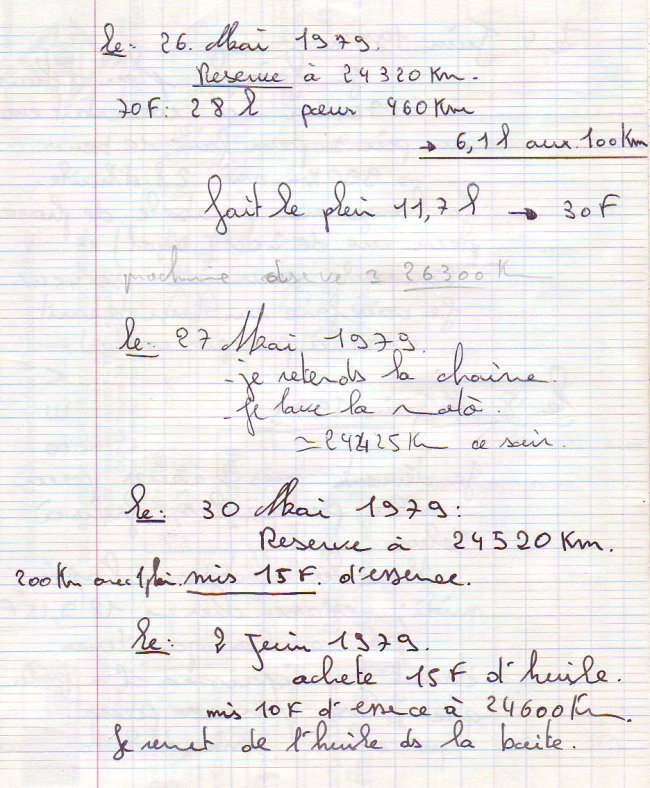 le: 26. Mai 1979.
Reserve à 24320 Km.
70F: 28 l pour 460 Km
→ 6,1 l aux 100 Km
fait le plein 11,7 l → 30 F
prochaine 26300 K
le: 27 Mai 1979.
- je retends la chaine.
- Je lave la moto.
≃ 24425 Km ce soir.
le: 30 Mai 1979:
Reserve à 24520 Km.
200 Km avec 1 plein. mis 15 F. d'essence.
le: 2 Juin 1979.
achete 15 F d'huile.
mis 10 F d'essece à 24600 Km.
Je remet de l'huile ds la boite.